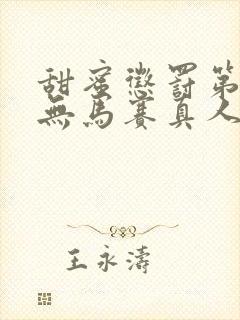 甜蜜懲罰第
無馬賽真人
王永濤